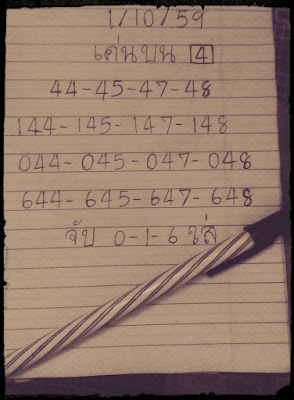 1/10/59
เด่นบน 4
44-45-47-48
144-145-147-148
044-045-047-048
644-645-647-648
จับ 0-1-6 ใส่